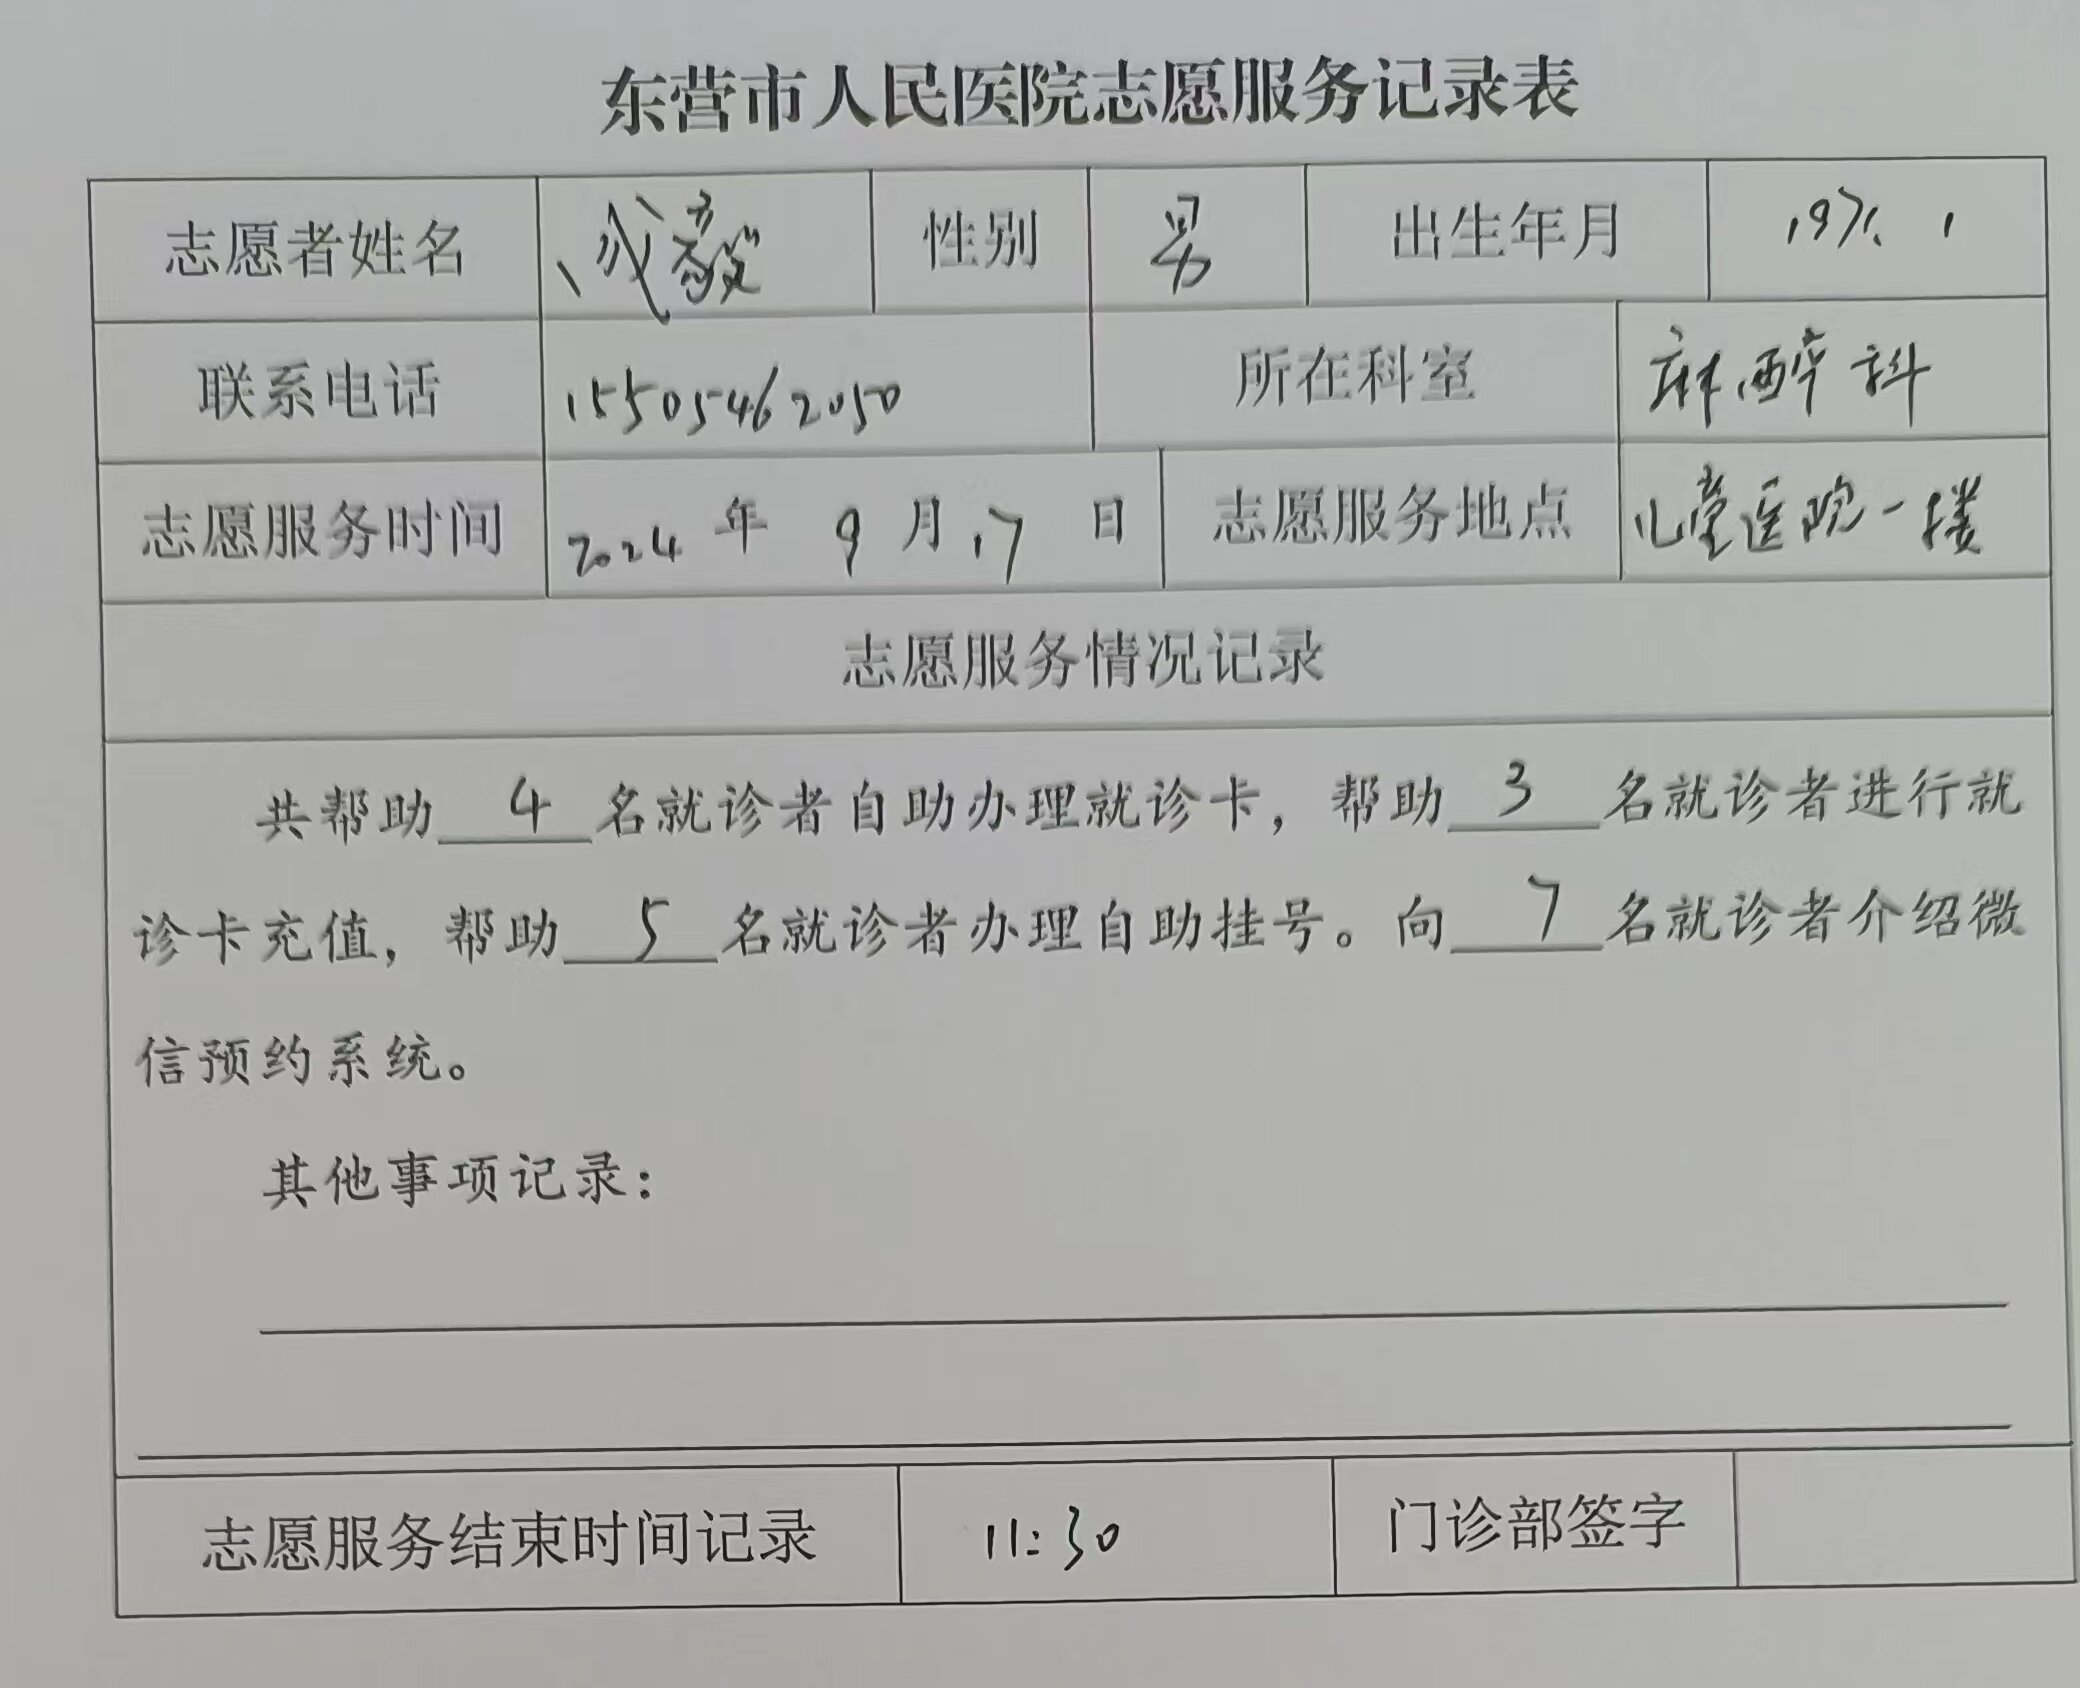 东营市人民医院志愿服务记录表
志愿者姓名 成毅 性别 男 出生年月 1971. 1
联系电话 15505462050 所在科室 麻醉科
志愿服务时间 2024 年 9 月 17 日 志愿服务地点 儿童医院一楼
志愿服务情况记录
共帮助 4 名就诊者自助办理就诊卡，帮助 3 名就诊者进行就
诊卡充值，帮助 5 名就诊者办理自助挂号。向 7 名就诊者介绍微
信预约系统。
其他事项记录：
志愿服务结束时间记录 11:30 门诊部签字